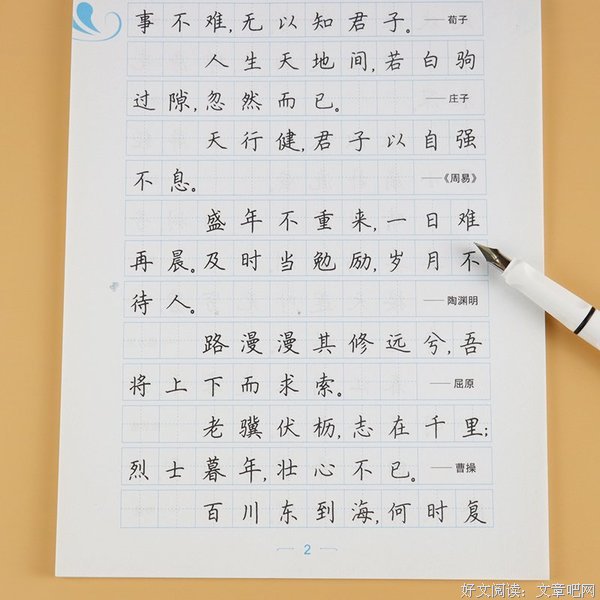 事不难,无以知君子。 ——荀子
人生天地间,若白驹
过隙,忽然而已。 ——庄子
天行健,君子以自强
不息。 ——《周易》
盛年不重来,一日难
再晨。及时当勉励,岁月不
待人。 ——陶渊明
路漫漫其修远兮,吾
将上下而求索。 ——屈原
老骥伏枥,志在千里;
烈士暮年,壮心不已。 ——曹操
百川东到海,何时复
2
好文阅读：文章吧网